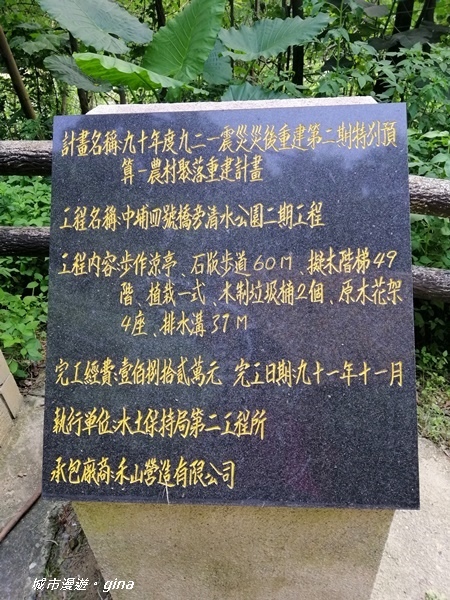 計畫名稱:九十年度九二一震災災後重建第二期特別預
算-農村聚落重建計畫
工程名稱:中埔四號橋旁清水公園二期工程
工程内容:步作涼亭、石版步道60M、擬木階梯49
階、植栽一式、木制垃圾桶2個、原木花架
4座、排水溝37M
完工經費:壹佰捌拾貳萬元 完工日期:九十一年十一月
執行單位:水土保持局第二工程所
承包廠商:禾山營造有限公司
城市漫遊。gina